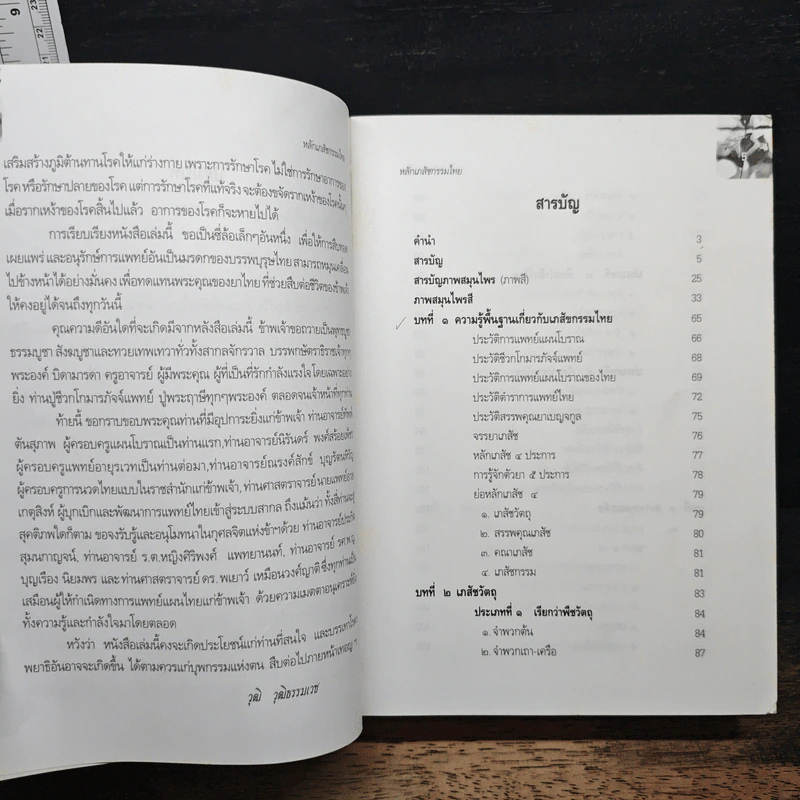 9
23
22
21
หลักเภสัชกรรมไทย
เสริมสร้างภูมิต้านทานโรคให้แก่ร่างกาย เพราะการรักษาโรค ไม่ใช่การรักษาอาการของ
โรค หรือรักษาปลายของโรค แต่การรักษาโรคที่แท้จริง จะต้องขจัดรากเหง้าของโรคนั้นๆ
เมื่อรากเหง้าของโรคสิ้นไปแล้ว อาการของโรคก็จะหายไปได้
การเรียบเรียงหนังสือเล่มนี้ ขอเป็นซี่ล้อเล็กๆอันหนึ่ง เพื่อให้การสืบทอด
เผยแพร่ และอนุรักษ์การแพทย์อันเป็นมรดกของบรรพบุรุษไทย สามารถหมุนเคลื่อน
ไปข้างหน้าได้อย่างมั่นคง เพื่อทดแทนพระคุณของยาไทย ที่ช่วยสืบต่อชีวิตของข้าพเจ้า
ให้คงอยู่ได้จนถึงทุกวันนี้
คุณความดีอันใดที่จะเกิดมีจากหลังสือเล่มนี้ ข้าพเจ้าขอถวายเป็นพุทธบูชา
ธรรมบูชา สังฆบูชาและทวยเทพเทวาทั่วทั้งสากลจักรวาล บรรพกษัตราธิราชเจ้าทุกๆ
พระองค์ บิดามารดา ครูอาจารย์ ผู้มีพระคุณ ผู้ที่เป็นที่รักกำลังแรงใจโดยเฉพาะอย่าง
ยิ่ง ท่านปู่ชีวกโกมารภัจจ์แพทย์ ปู่พระฤาษีทุกๆพระองค์ ตลอดจนเจ้าหน้าที่ทุกท่าน
ท้ายนี้ ขอกราบขอบพระคุณท่านที่มีอุปการะยิ่งแก่ข้าพเจ้า ท่านอาจารย์
ตันสุภาพ ผู้ครอบครูแผนโบราณเป็นท่านแรก,ท่านอาจารย์นิรันดร์ พงศ์สร้อยเพ็ชร
ผู้ครอบครูแพทย์อายุรเวทเป็นท่านต่อมา,ท่านอาจารย์ณรงค์สักข์ บุญรัตนหิรัญ
ผู้ครอบครูการนวดไทยแบบในราชสำนักแก่ข้าพเจ้า,ท่านศาสตราจารย์นายแพทย์อวย
เกตุสิงห์ ผู้บุกเบิกและพัฒนาการแพทย์ไทยเข้าสู่ระบบสากล ถึงแม้นว่า ทั้งสี่ท่านจะสู่
สุคติภพใดก็ตาม ขอจงรับรู้และอนุโมทนาในกุศลจิตแห่งข้าฯด้วย ท่านอาจารย์ประกิต
สุมนกาญจน์, ท่านอาจารย์ ร.ต.หญิงศิริพงศ์ แพทยานนท์, ท่านอาจารย์ รศ.พ.ญ.
บุญเรือง นิยมพร และท่านศาสตราจารย์ ดร. พเยาว์ เหมือนวงศ์ญาติ ซึ่งทุกท่านเป็น
เสมือนผู้ให้กำเนิดทางการแพทย์แผนไทยแก่ข้าพเจ้า ด้วยความเมตตาอนุเคราะห์ให้
ทั้งความรู้และกำลังใจมาโดยตลอด
หวังว่า หนังสือเล่มนี้คงจะเกิดประโยชน์แก่ท่านที่สนใจ และบรรเทาโรค
พยาธิอันอาจจะเกิดขึ้น ได้ตามควรแก่บุพกรรมแห่งตน สืบต่อไปภายหน้าเทอญ ฯ
วุฒิ วุฒิธรรมเวช
หลักเภสัชกรรมไทย
5
สารบัญ
คำนำ 3
สารบัญ 5
สารบัญภาพสมุนไพร (ภาพสี) 25
ภาพสมุนไพรสี 33
บทที่ ๑ ความรู้พื้นฐานเกี่ยวกับเภสัชกรรมไทย 65
ประวัติการแพทย์แผนโบราณ 66
ประวัติชีวกโกมารภัจจ์แพทย์ 68
ประวัติการแพทย์แผนโบราณของไทย 69
ประวัติตำราการแพทย์ไทย 72
ประวัติสรรพคุณยาเบญจกูล 75
จรรยาเภสัช 76
หลักเภสัช ๔ ประการ 77
การรู้จักตัวยา ๕ ประการ 78
ย่อหลักเภสัช ๔ 79
๑. เภสัชวัตถุ 79
๒. สรรพคุณเภสัช 80
๓. คณาเภสัช 81
๔. เภสัชกรรม 81
บทที่ ๒ เภสัชวัตถุ 83
ประเภทที่ ๑ เรียกว่าพืชวัตถุ 84
๑. จำพวกต้น 84
๒. จำพวกเถา-เครือ 87